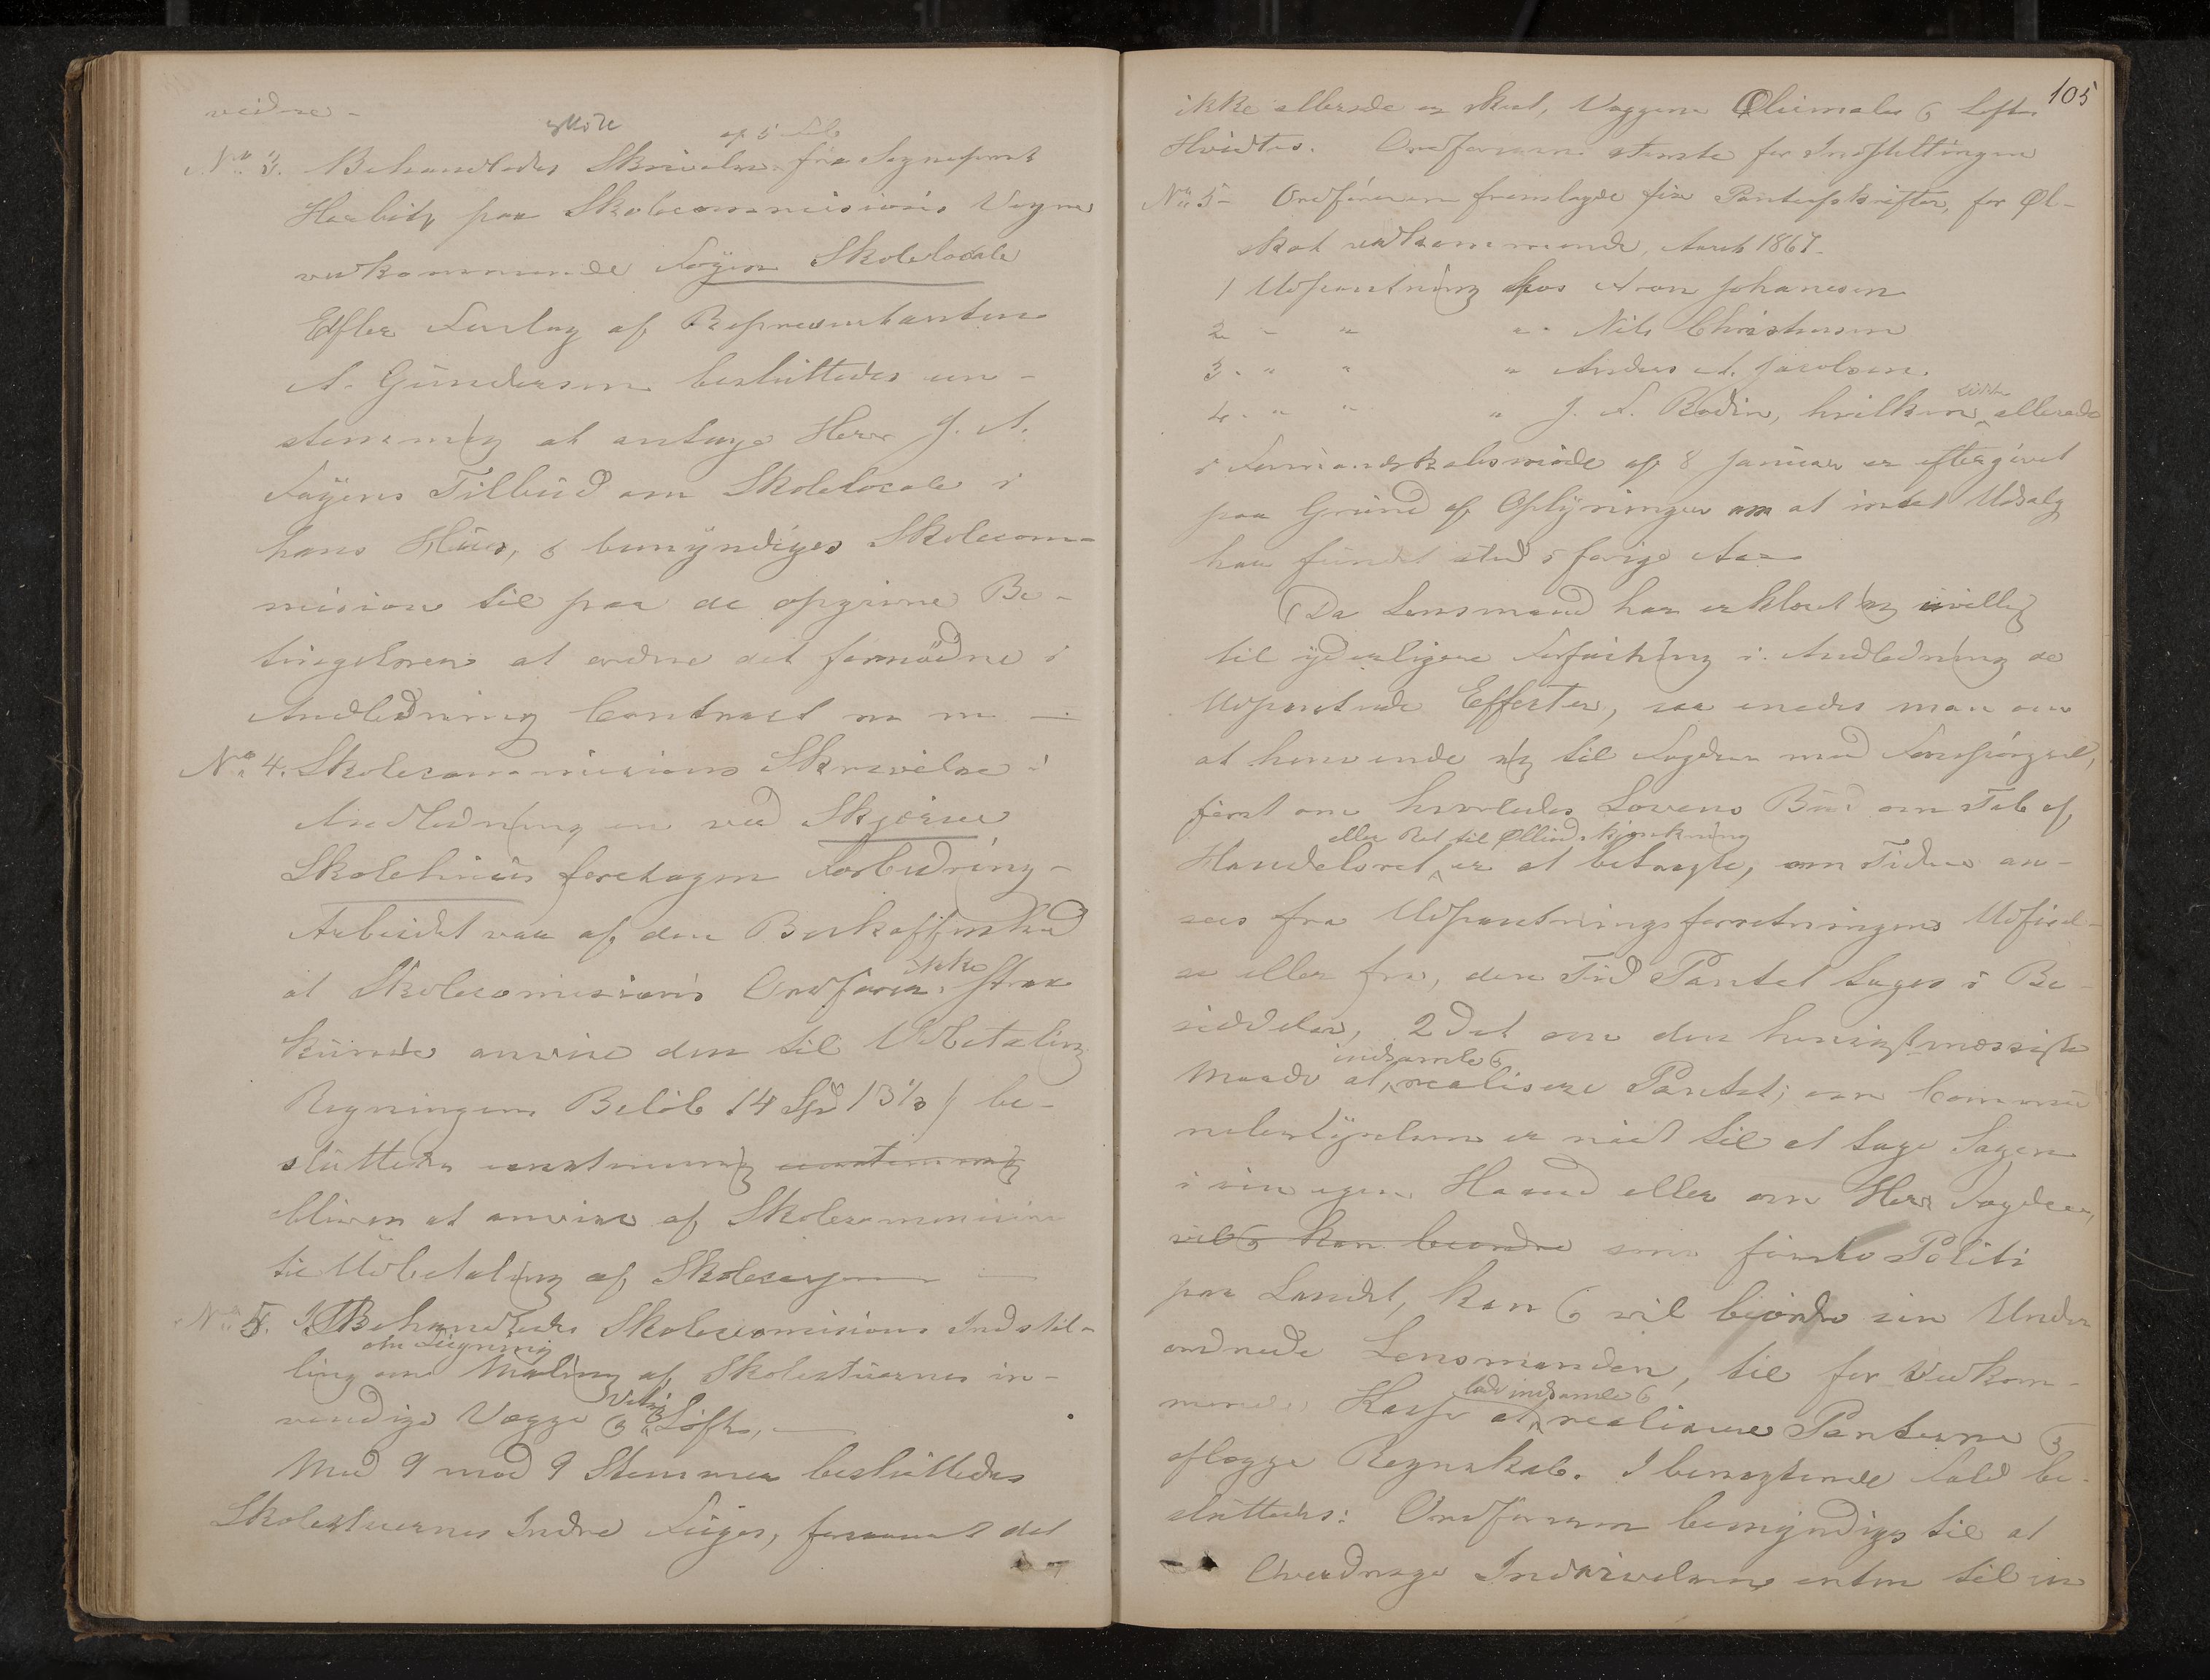 veidne -
af 5 Feb
No 3. Behandledes Skrivelse fra Sogneprest
paa Skolecommisions Vegne
vedkommende Føyen Skolelocale
Efter Forslag af Representanten
A. Gundersen besluttedes een-
stemmig at antage Herr J. A.
Føyens Tilbud om Skolelocale i
hans Huus, & bemyndiges Skolecom-
mision til paa de opgivne Be-
tingelser at ordne det fornødne i
Andledning Contract m m —
No 4. Skolecommisions Skrivelse i
Andledning en ved Skjerve
Skolehuus foretagen Forbedring-
Arbeidet var af den Beskaffenhed
at Skolecomissions Ordfører ikke strax
kunde anvise den til Udbetaling
Regningens Beløb 14 Spd 13 1/3 ß be-
sluttedes eenstemmig eenstemmig
bliver at anvise af Skolecommision
til Udbetaling af Skolecassen —
No 5. Behandledes Skolecomisions Indstil-
om Fugning
ling om Maling af Skolestuernes in-
vendige Vægge & Hvidtning Lofte, —
Med 9 mod 9 Stemmer besluttedes
Skolestuernes Indre Fuges, forsaavidt det
105
ikke allerede er skeet, Væggene Oliemales & Lofte
Hvidtes. Ordføreren stemte for Indstillingen
No 5- Ordføreren fremlagde fire Panteafskrifter, for Øl-
skat vedkommende, Aaret 1867.
1 Udpantning hos Aron Johanesen
2 - " " - Nils Christensen
3 - " " " Anders A. Jacobsen.
4 - " " " J. A. Bodin, hvilken sidste allerede
i Formandskabsmøde af 8 Januar er eftergivet
paa Grund af Oplysninger om at intet Udsalg
har fundet sted i forige Aar
Da Lensmand har erklæret sig uvillig
til yderligere Forfatning i Andledning de
Udpantede Effecter, saa enedes man om
at henvende sig til Fogden med Forespørgsel,
først om hvorledes Lovens Bud om Tab af
eller Ret til Ølludskjenkning
Handelsret er at betragte, om Tiden an-
sees fra Udpantningsforretningens Udførel-
se eller fra, den Tid Pantet tages i Be-
siddelse, 2det om den hensigtmæssigste
indsamle &
Maade at realisere Pantet; om Commu
nebestyrelsen er nødt til at tage Sagen
i sin egen Haand eller om Herr Fogden,
vil & kan beordre som første Politi
paa Landet, kan & vil beordre sin Under
ordnede Lensmanden, til for Vedkom-
lade indsamle &
mende Kasse at realisere Panterne &
aflægge Regnskab. I benægtende Fald be-
sluttedes: Ordføreren bemyndiges til at
Overdrage Inddrivelsen enten til en